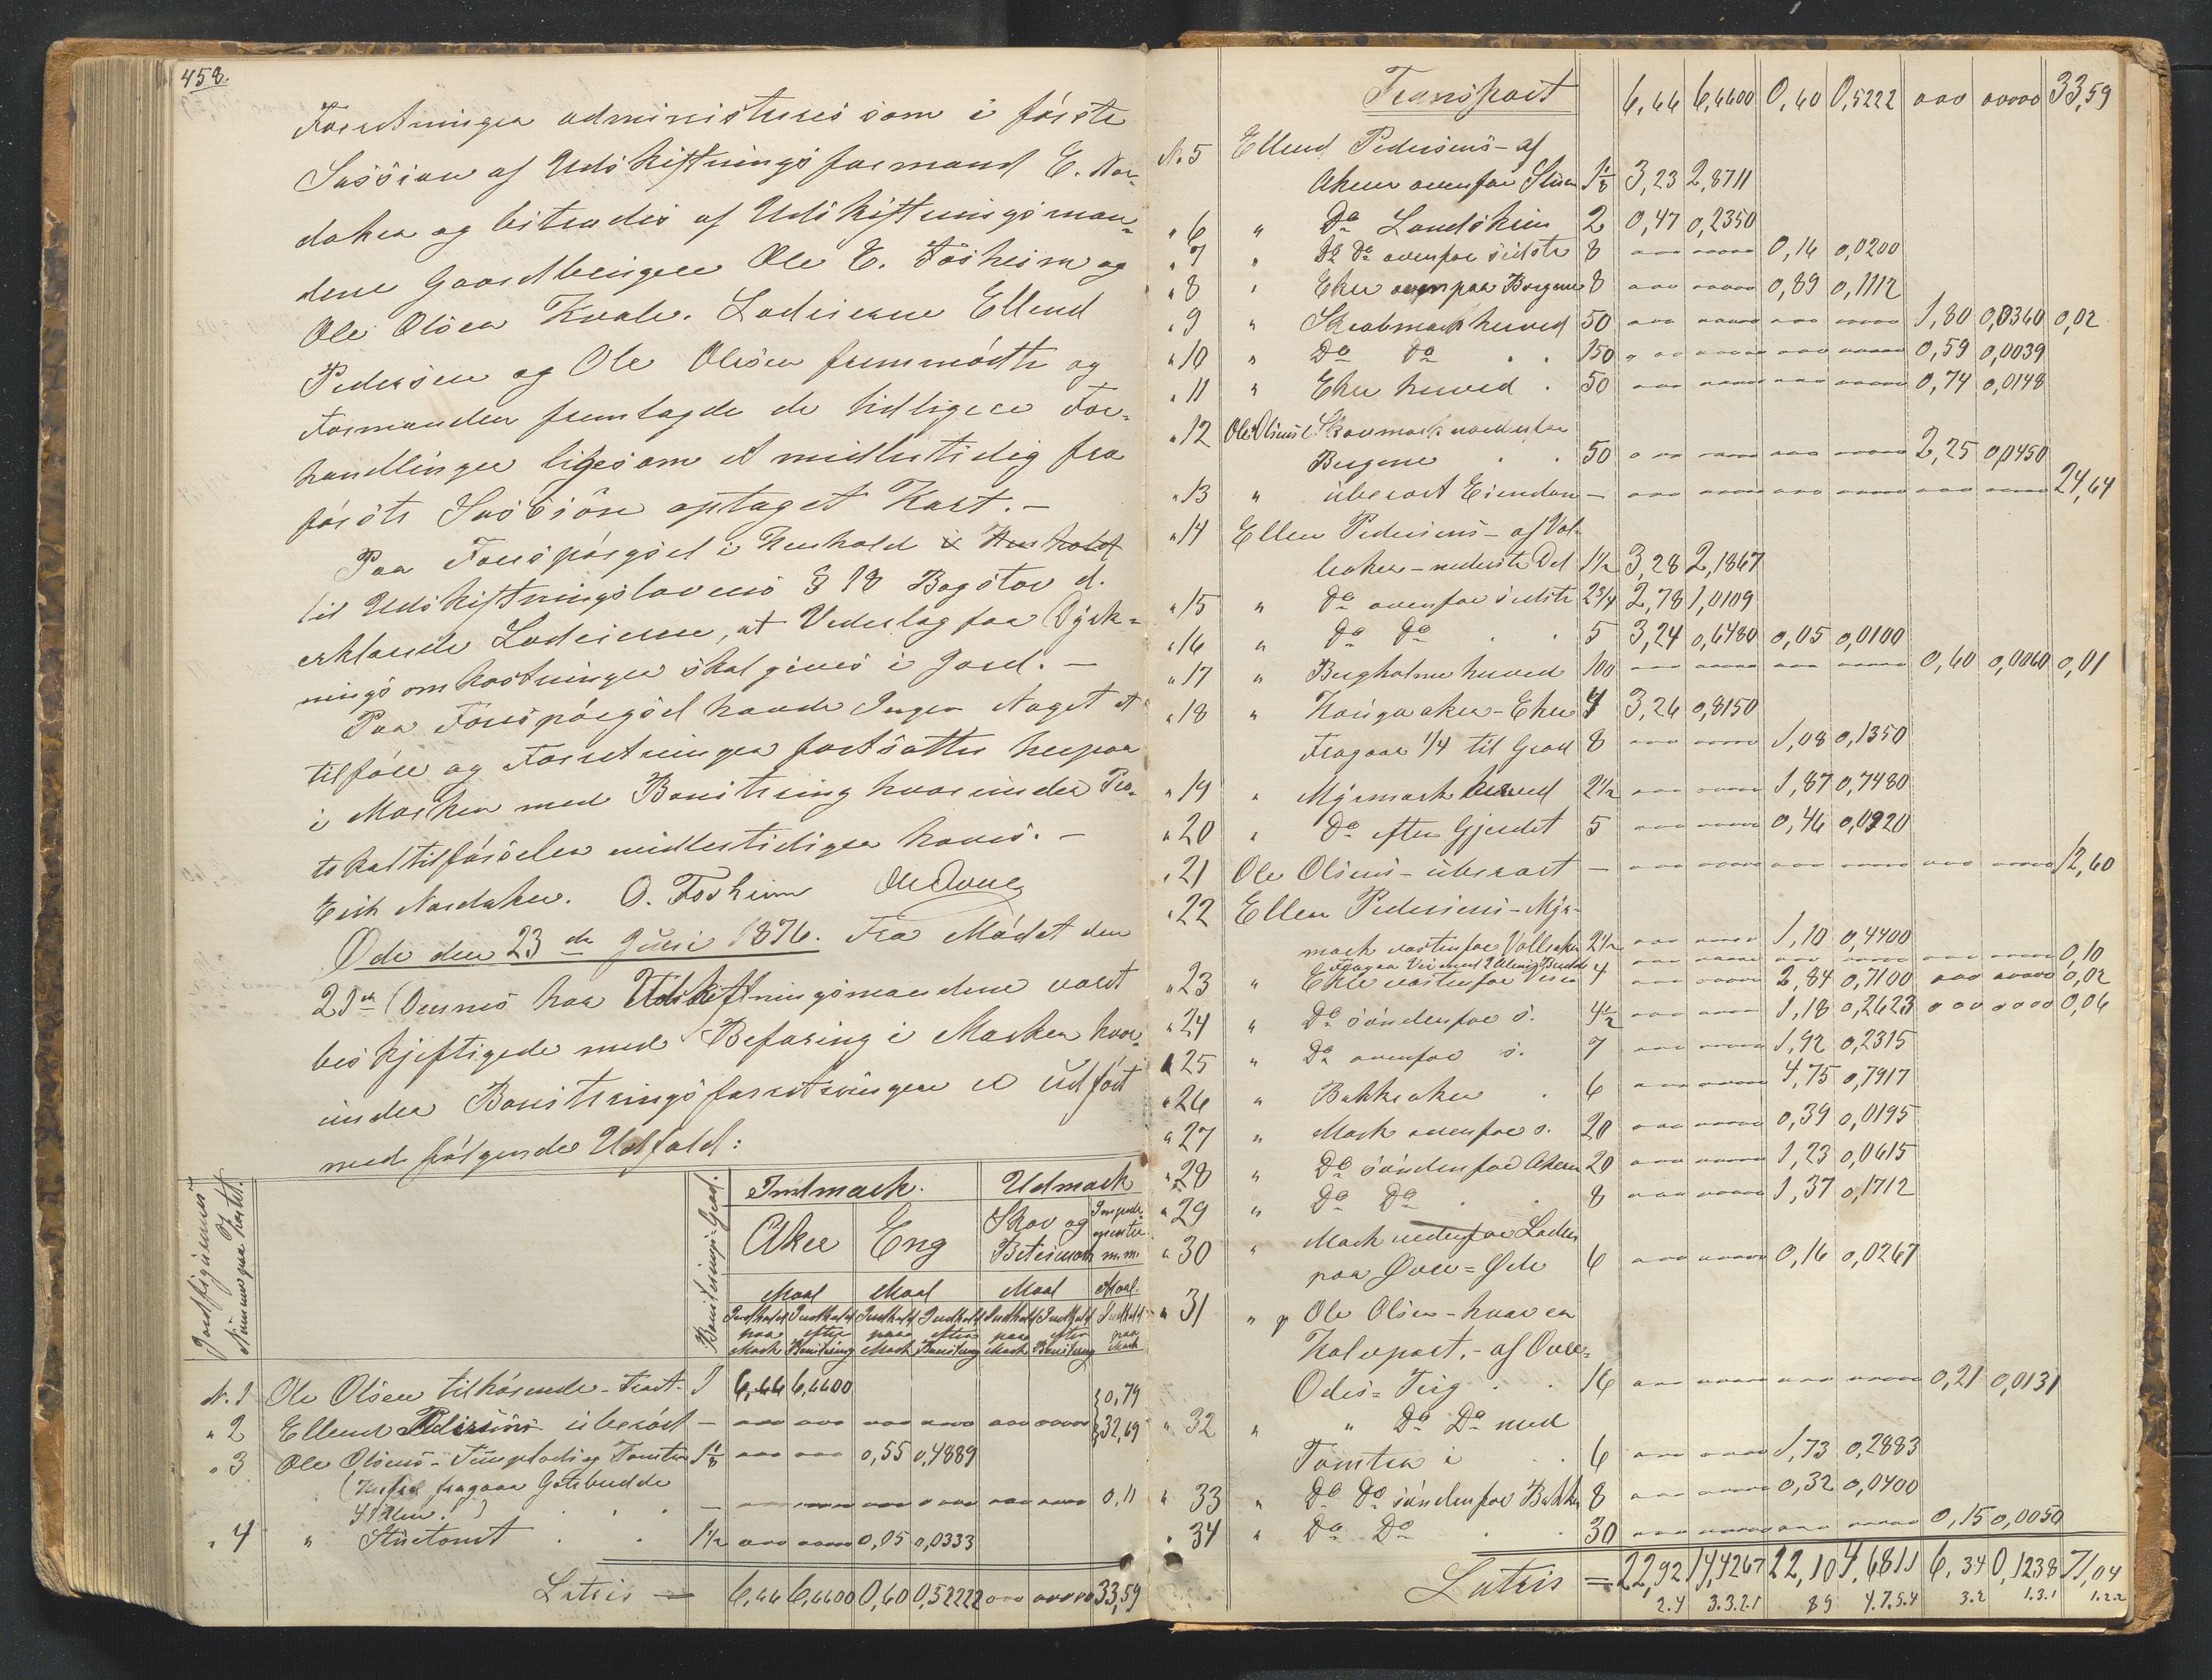 458.
Forretningen administreres som i første
Session af Udskiftningsformand E. Nor-
daker og bitrædes af Udskiftningsmæn-
dene Gaardbrugere Ole E. Fosheim og
Ole Olsen Kvale. Lodeierne Ellend
Pedersen og Ole Olsen fremmødte og
Formanden fremlagde de tidligere For-
handlinger ligesom et midlertidig fra
første Session optaget Kart. -
Paa Forespørgsel i Henhold i Henhold
til Udskiftningslovens § 18 Bogstav d.
erklærede Lodeierne, at Vederlag for Dyrk-
ningsomkostninger skal gives i Jord. -
Paa Forespørgsel havde Ingen Noget at
tilføre og Forretningen fortsattes herpaa
i Marken med Bonitering hvorunder Pro-
tokoltilførselen midlertidigen hæves. -
Erik Nordaker. O. Fosheim
Øde den 23de Juni 1876. Fra Mødet den
21de Dennes har Udskiftningsmændene været
beskjeftigede med Befaring i Marken hvor-
under Boniteringsforretningen er udført
med følgende Udfald:
Jordfigurernes Nummer paa Kartet.
Boniterings-Grad.
Indmark. Udmark
Aker Eng Skov og Beitesmark Impedimenter m.m.
Maal Maal Maal Maal.
Indhold paa Mark Indhold efter Bonitering Indhold paa Mark Indhold efter Bonitering Indhold paa Mark Indhold efter Bonitering Indhold paa Mark
N. 1 Ole Olsen tilhørende - Tract. 1 6,66 6,6600 0,79
" 2 Ellend Pedersens uberørt - 32,69
" 3 Ole Olsens - Tunplads og Tomter 1 1/8 0,55 0,4889
(Herfra fragaar Gatebredde
4 Alen.) - 0,11
" 4 " Stuetomt 1 1/2 0,05 0,0333
Lateris = 6,66 6,6600 0,60 0,52222 33,59
Transport 6,66 6,6600 0,60 0,5222 33,59
N. 5 Ellend Pedersens - af
Akeren ovenfor Stuen 1 1/8 3,23 2,8711
" 6 " Do Landskein 2 0,47 0,2350
" 7 " Do Do ovenfor sidste 8 0,16 0,0200
" 8 " Eker ovenpaa Bergene 8 0,89 0,1112
" 9 " Skrabmark herved 50 1,80 0,0360 0,02
" 10 " Do Do 150 0,59 0,0039
" 11 " Eker herved 50 0,74 0,0148
" 12 Ole Olsens Skovmark nordenfor
Bergene 50 2,25 0,0450
" 13 " uberørt Eiendom - 24,64
" 14 Ellen Pedersens - af Vol-
leaker - nederste Del 1 1/2 3,28 2,1867
" 15 " Do ovenfor sidste 2 3/4 2,78 1,0109
" 16 " Do Do 5 3,24 0,6480 0,05 0,0100
" 17 " Bergholme herved 100 0,60 0,0060 0,01
" 18 " Haugaaker - Eker 4 3,26 0,8150
Fragaar 1/4 til Grad 8 1,08 0,1350
" 19 " Myrmark herved 2 1/2 1,87 0,7480
" 20 " Do efter Gjerdet 5 0,46 0,0920
" 21 Ole Olsens - uberørt - 12,60
" 22 Ellen Pedersens - Myr-
mark vestenfor Volleaker 2 1/2 1,10 0,4400
Fragaar Vei med 2 Alens Bredde 0,10
" 23 " Eker vestenfor Veien 4 2,84 0,7100 0,02
" 24 " Do søndenfor s. 4 1/2 1,18 0,2623 0,06
" 25 " Do ovenfor s. 7 1,92 0,2315
" 26 " Bakkeaker 6 4,75 0,7917
" 27 " Mark ovenfor s. 20 0,39 0,0195
" 28 " Do søndenfor Akeren 20 1,23 0,0615
" 29 " Do Do 8 1,37 0,1712
" 30 " Mark nedenfor Laden
paa Øvre-Øde 6 0,16 0,0267
" 31 " og Ole Olsen - hver en
Halvpart, - af Øvre-
Ødes-Teig 16 0,21 0,0131
" 32 " " Do Do med
Tomten i 6 1,73 0,2883
" 33 " Do Do søndenfor Bakken 8 0,32 0,0400
" 34 " Do Do 30 0,15 0,0050
Lateris = 22,92 14,4267 22,10 4,6811 6,34 0,1238 71,04
2.4 3.3.2.1 89 4.7.5.4 3.2 1.3.1 1.2.2